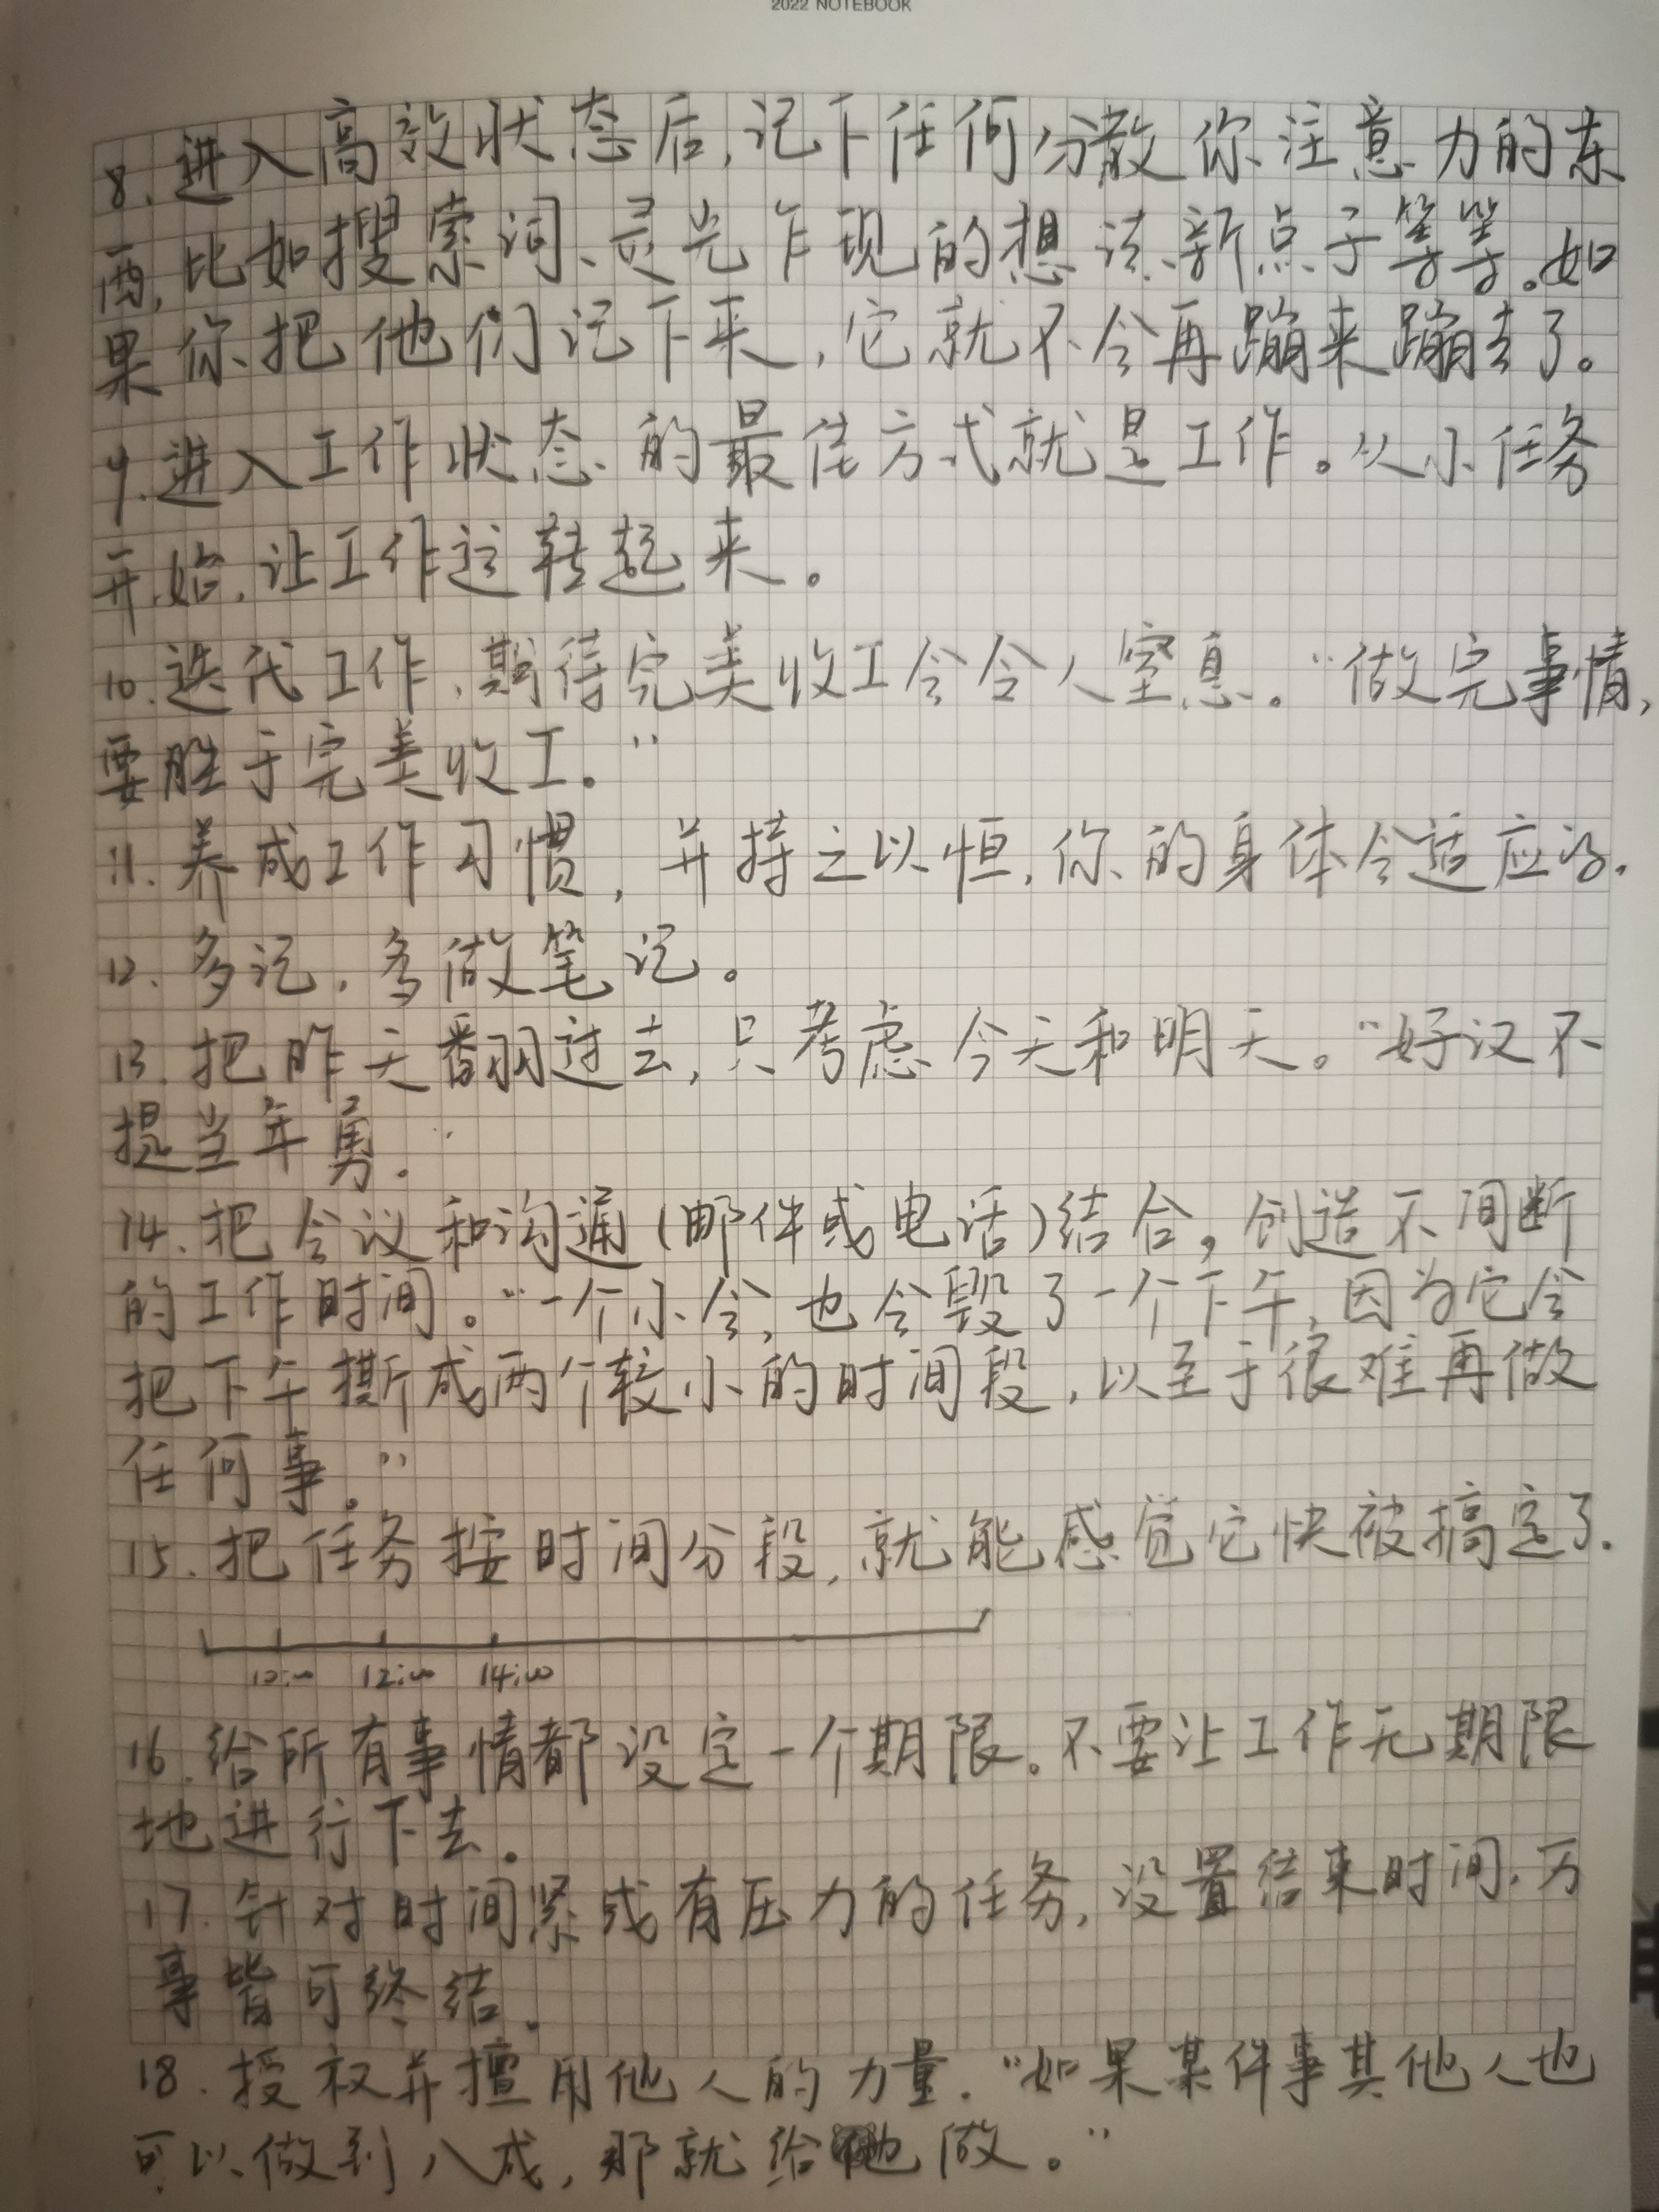 2022 NOTEBOOK
8. 进入高效状态后,记下任何分散你注意力的东
西,比如搜索词、灵光乍现的想法、新点子等等。如
果你把他们记下来,它就不会再蹦来蹦去了。
9. 进入工作状态的最佳方式就是工作。从小任务
开始,让工作运转起来。
10. 迭代工作,期待完美收工会令人窒息。“做完事情,
要胜于完美收工。”
11. 养成工作习惯,并持之以恒,你的身体会适应的.
12. 多记,多做笔记。
13. 把昨天翻过去,只考虑今天和明天。“好汉不
提当年勇.”
14. 把会议和沟通(邮件或电话)结合,创造不间断
的工作时间。“一个小会,也会毁了一个下午,因为它会
把下午撕成两个较小的时间段,以至于很难再做
任何事。”
15. 把任务按时间分段,就能感觉它快被搞定了.
10:00 12:00 14:00
16. 给所有事情都设定一个期限。不要让工作无期限
地进行下去.
17. 针对时间紧或有压力的任务,设置结束时间,万
事皆可终结.
18. 授权并擅用他人的力量.“如果某件事其他人也
可以做到八成,那就给他做。”